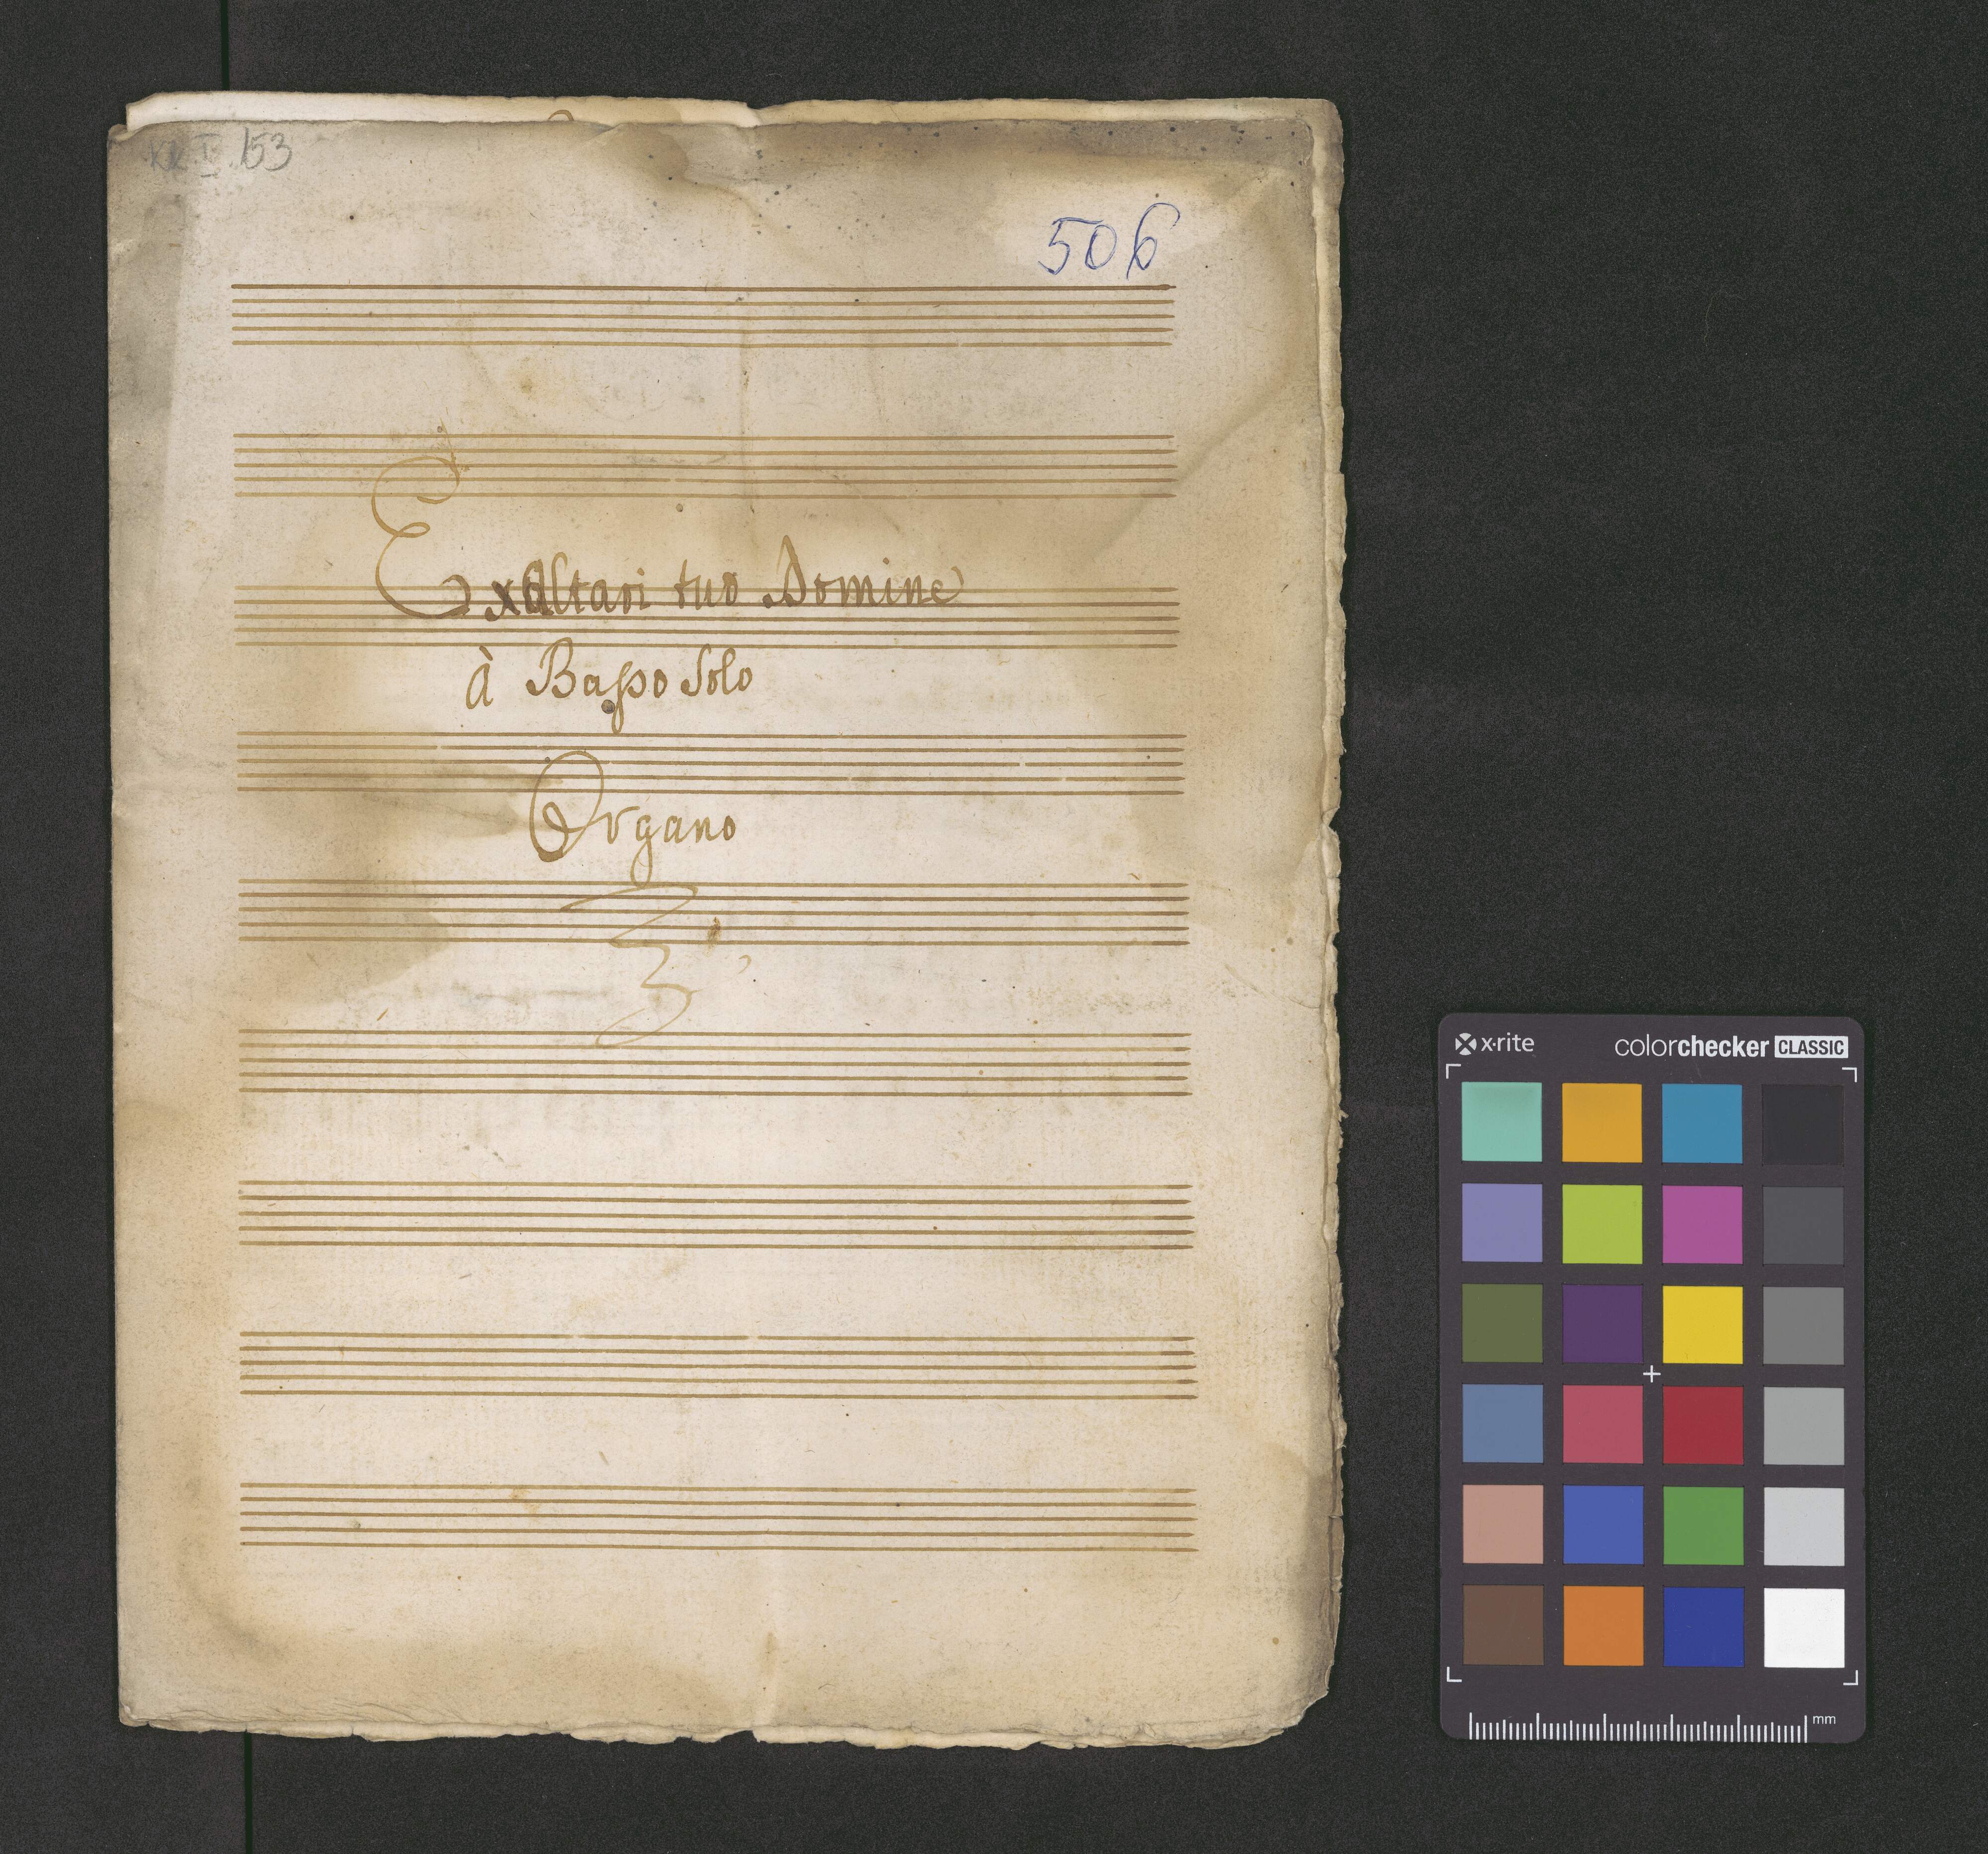 Kk. I. 153
506
Exaltari tuo Domine
à Basso Solo
Organo
x·rite
colorchecker CLASSIC
mm